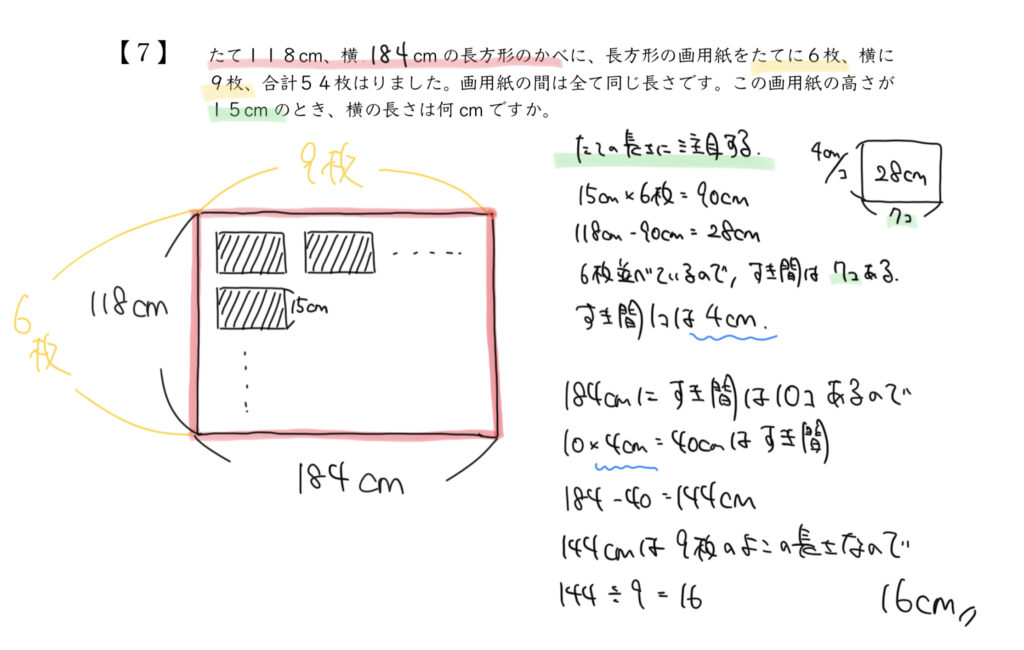 【７】
たて１１８cm、横 184 cm の長方形のかべに、長方形の画用紙をたてに６枚、横に
９枚、合計５４枚はりました。画用紙の間は全て同じ長さです。この画用紙の高さが
１５cm のとき、横の長さは何 cm ですか。
たての長さに注目する.
4cm/コ
28cm
7コ
9枚
15cm×6枚=90cm
118cm-90cm=28cm
6枚並べているので, すき間は 7コある.
すき間1コは 4cm.
118cm
6枚
15cm
184cm
184cmに すき間は10コ あるので
10×4cm=40cmは すき間
184-40=144cm
144cmは 9枚のよこの長さなので
144÷9=16
16cm